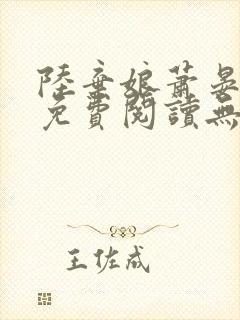 陸棄娘蕭晏
免費閱讀無
王佐成